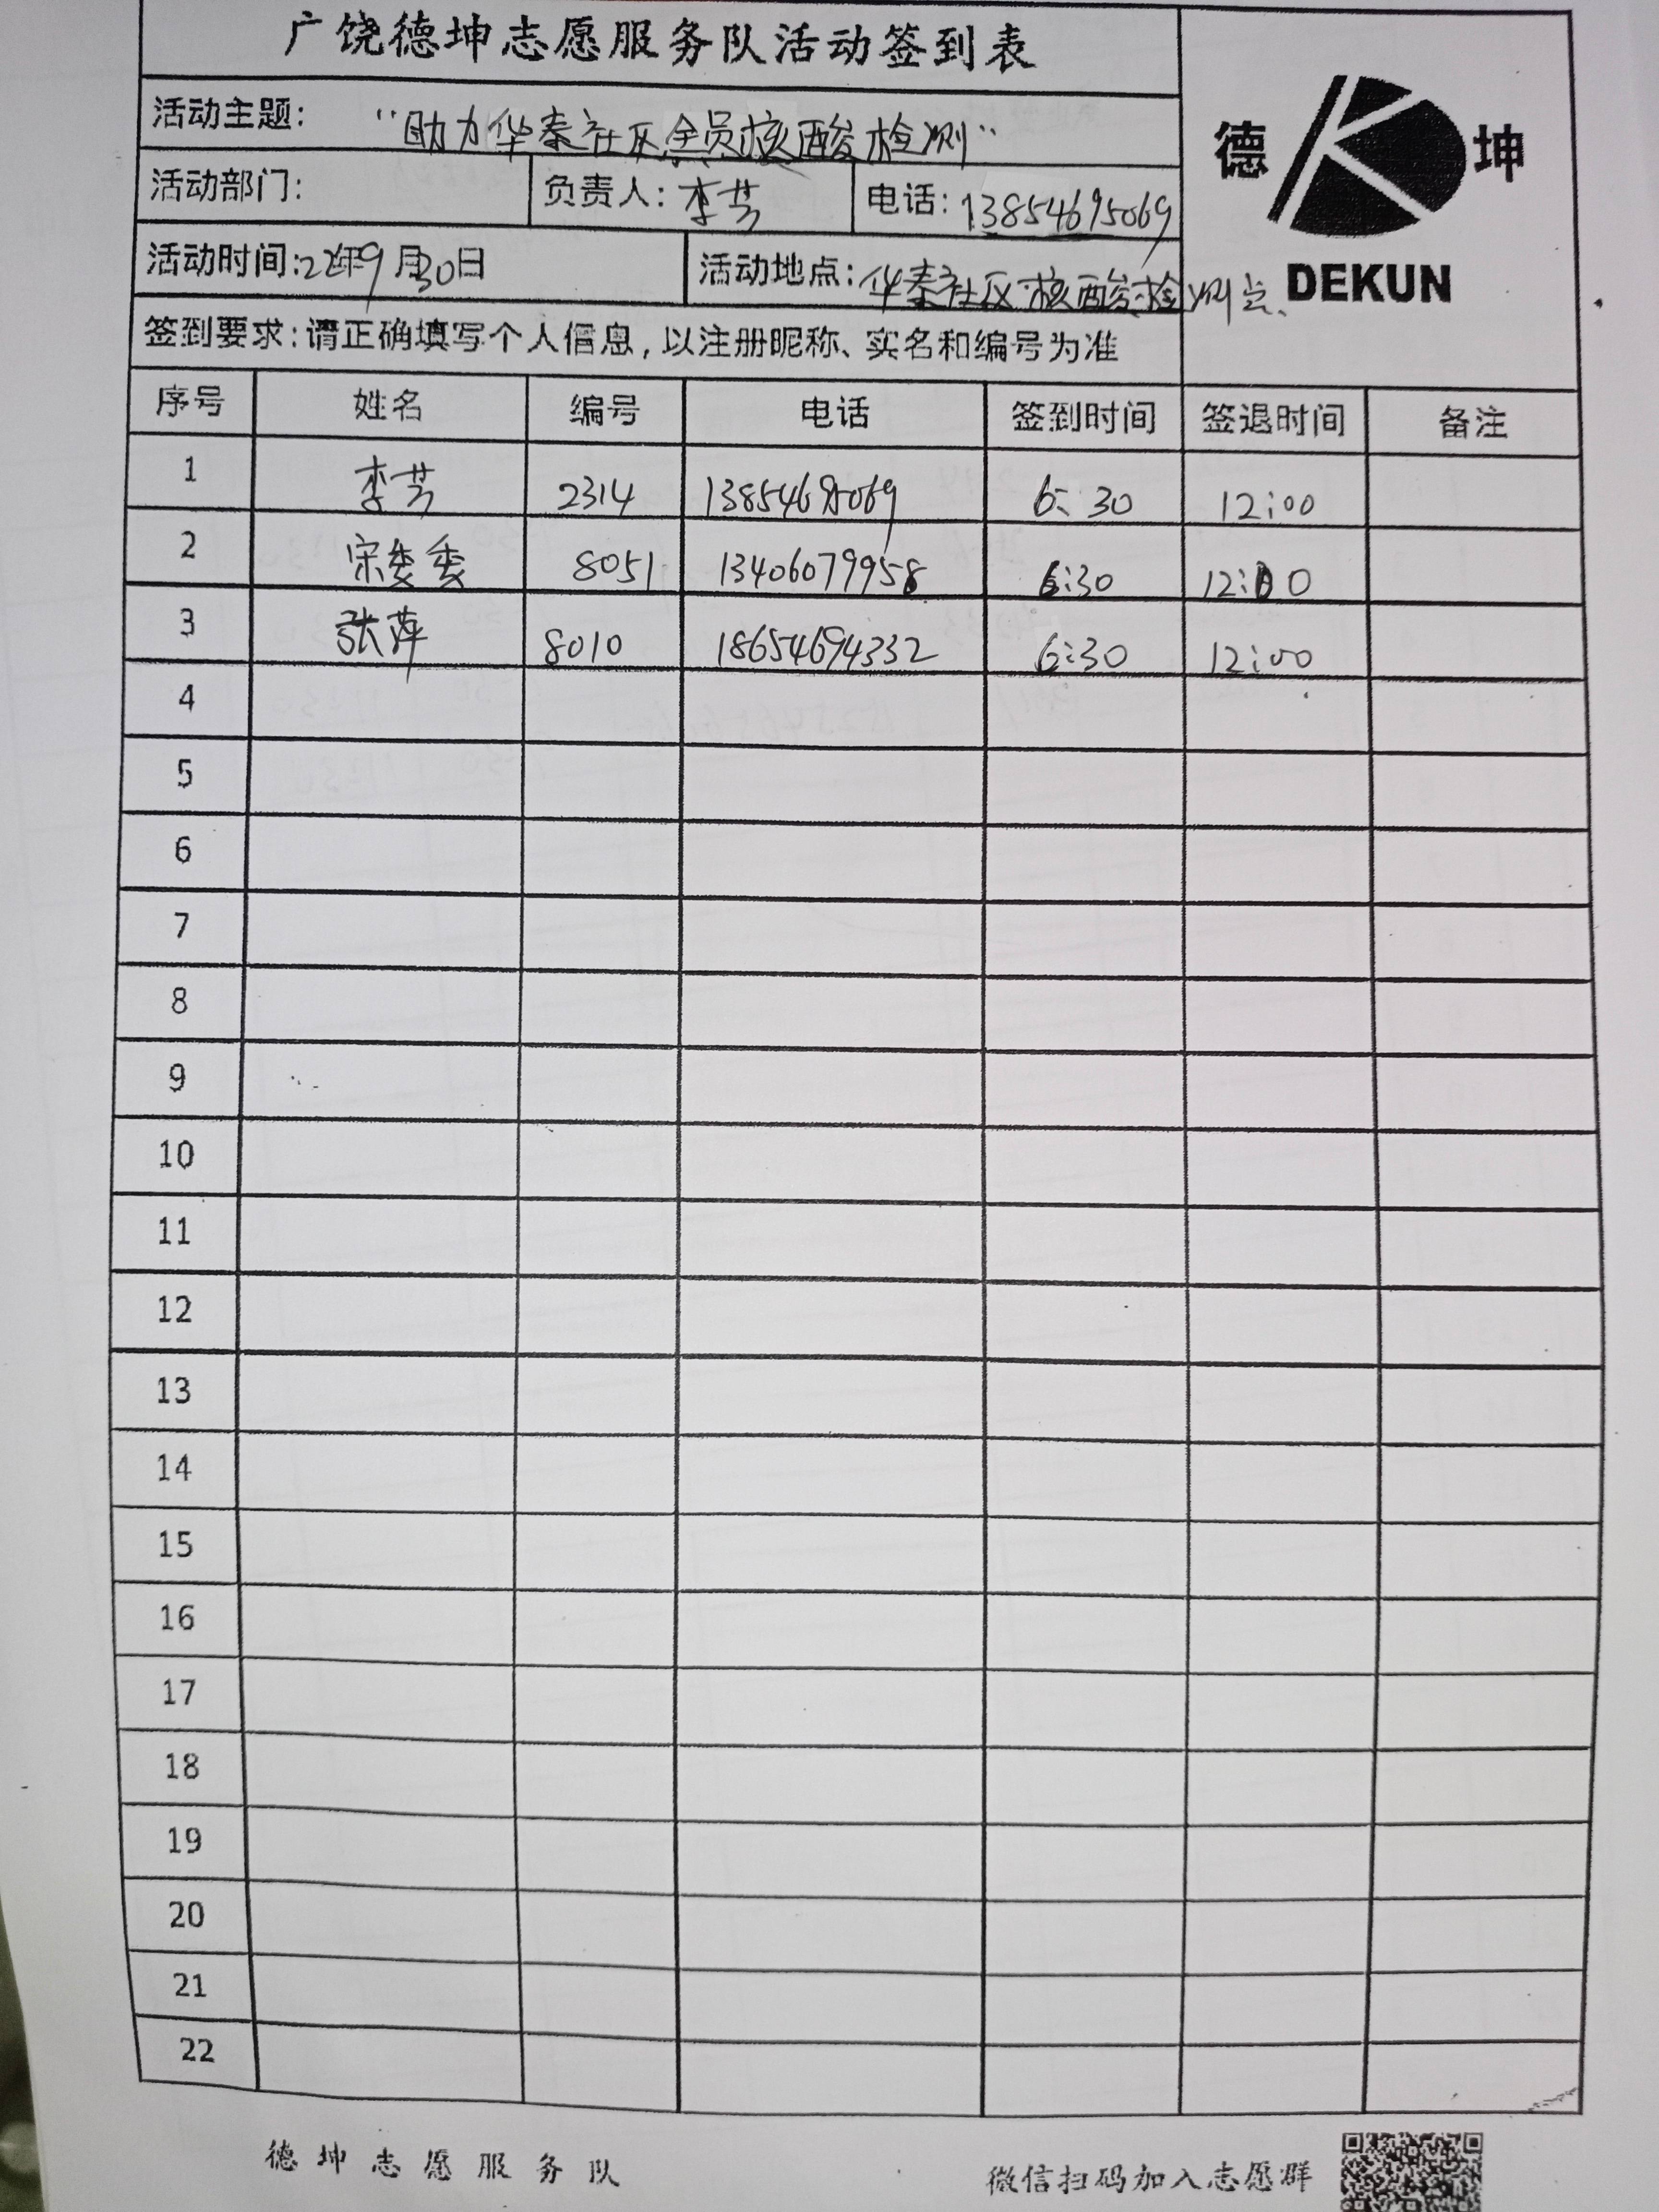 广饶德坤志愿服务队活动签到表
活动主题: "助力华泰社区全员核酸检测"
德 坤
活动部门: 负责人: 李芸 电话: 13854695069
活动时间: 22年9月30日 活动地点: 华泰社区核酸检测点
DEKUN
签到要求: 请正确填写个人信息, 以注册昵称、实名和编号为准
序号 姓名 编号 电话 签到时间 签退时间 备注
1 李芸 2314 13854695069 6:30 12:00
2 宋委委 8051 13406079958 6:30 12:00
3 张萍 8010 18654694332 6:30 12:00
4
5
6
7
8
9
10
11
12
13
14
15
16
17
18
19
20
21
22
德坤志愿服务队 微信扫码加入志愿群